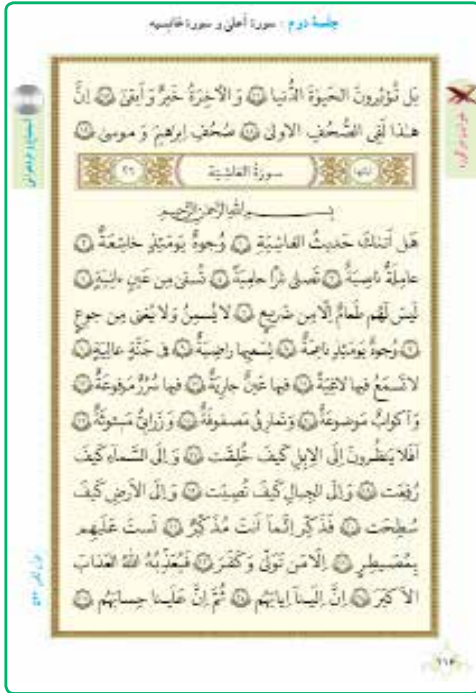 جلسهٔ دوم : سورهٔ أعلی و سورهٔ غاشیه
بَل تُؤثِرونَ الحَیوٰةَ الدُّنیا ۝۱۶ وَ الآخِرَةُ خَیرٌ وَ أَبقیٰ ۝۱۷ إِنَّ
هٰذا لَفِی الصُّحُفِ الاولیٰ ۝۱۸ صُحُفِ إِبرٰهیمَ وَ موسیٰ ۝۱۹
آیاتها سورةُ الغاشِیَة ۲۶
بِسمِ اللهِ الرَّحمٰنِ الرَّحیمِ
هَل أَتىٰكَ حَدیثُ الغاشِیَةِ ۝۱ وُجوهٌ یَومَئِذٍ خاشِعَةٌ ۝۲
عامِلَةٌ ناصِبَةٌ ۝۳ تَصلیٰ نارًا حامِیَةً ۝۴ تُسقیٰ مِن عَینٍ ءانِیَةٍ ۝۵
لَیسَ لَهُم طَعامٌ إِلّا مِن ضَریعٍ ۝۶ لا یُسمِنُ وَ لا یُغنی مِن جوعٍ
۝۷ وُجوهٌ یَومَئِذٍ ناعِمَةٌ ۝۸ لِسَعیِها راضِیَةٌ ۝۹ فی جَنَّةٍ عالِیَةٍ ۝۱۰
لا تَسمَعُ فیها لاغِیَةً ۝۱۱ فیها عَینٌ جارِیَةٌ ۝۱۲ فیها سُرُرٌ مَرفوعَةٌ ۝۱۳
وَ أَكوابٌ مَوضوعَةٌ ۝۱۴ وَ نَمارِقُ مَصفوفَةٌ ۝۱۵ وَ زَرابِیُّ مَبثوثَةٌ ۝۱۶
أَفَلا یَنظُرونَ إِلَی الإِبِلِ كَیفَ خُلِقَت ۝۱۷ وَ إِلَی السَّماءِ كَیفَ
رُفِعَت ۝۱۸ وَ إِلَی الجِبالِ كَیفَ نُصِبَت ۝۱۹ وَ إِلَی الأَرضِ كَیفَ
سُطِحَت ۝۲۰ فَذَكِّر إِنَّما أَنتَ مُذَكِّرٌ ۝۲۱ لَستَ عَلَیهِم
بِمُصَیطِرٍ ۝۲۲ إِلّا مَن تَوَلّیٰ وَ كَفَرَ ۝۲۳ فَیُعَذِّبُهُ اللهُ العَذابَ
الأَكبَرَ ۝۲۴ إِنَّ إِلَینا إِیابَهُم ۝۲۵ ثُمَّ إِنَّ عَلَینا حِسابَهُم ۝۲۶